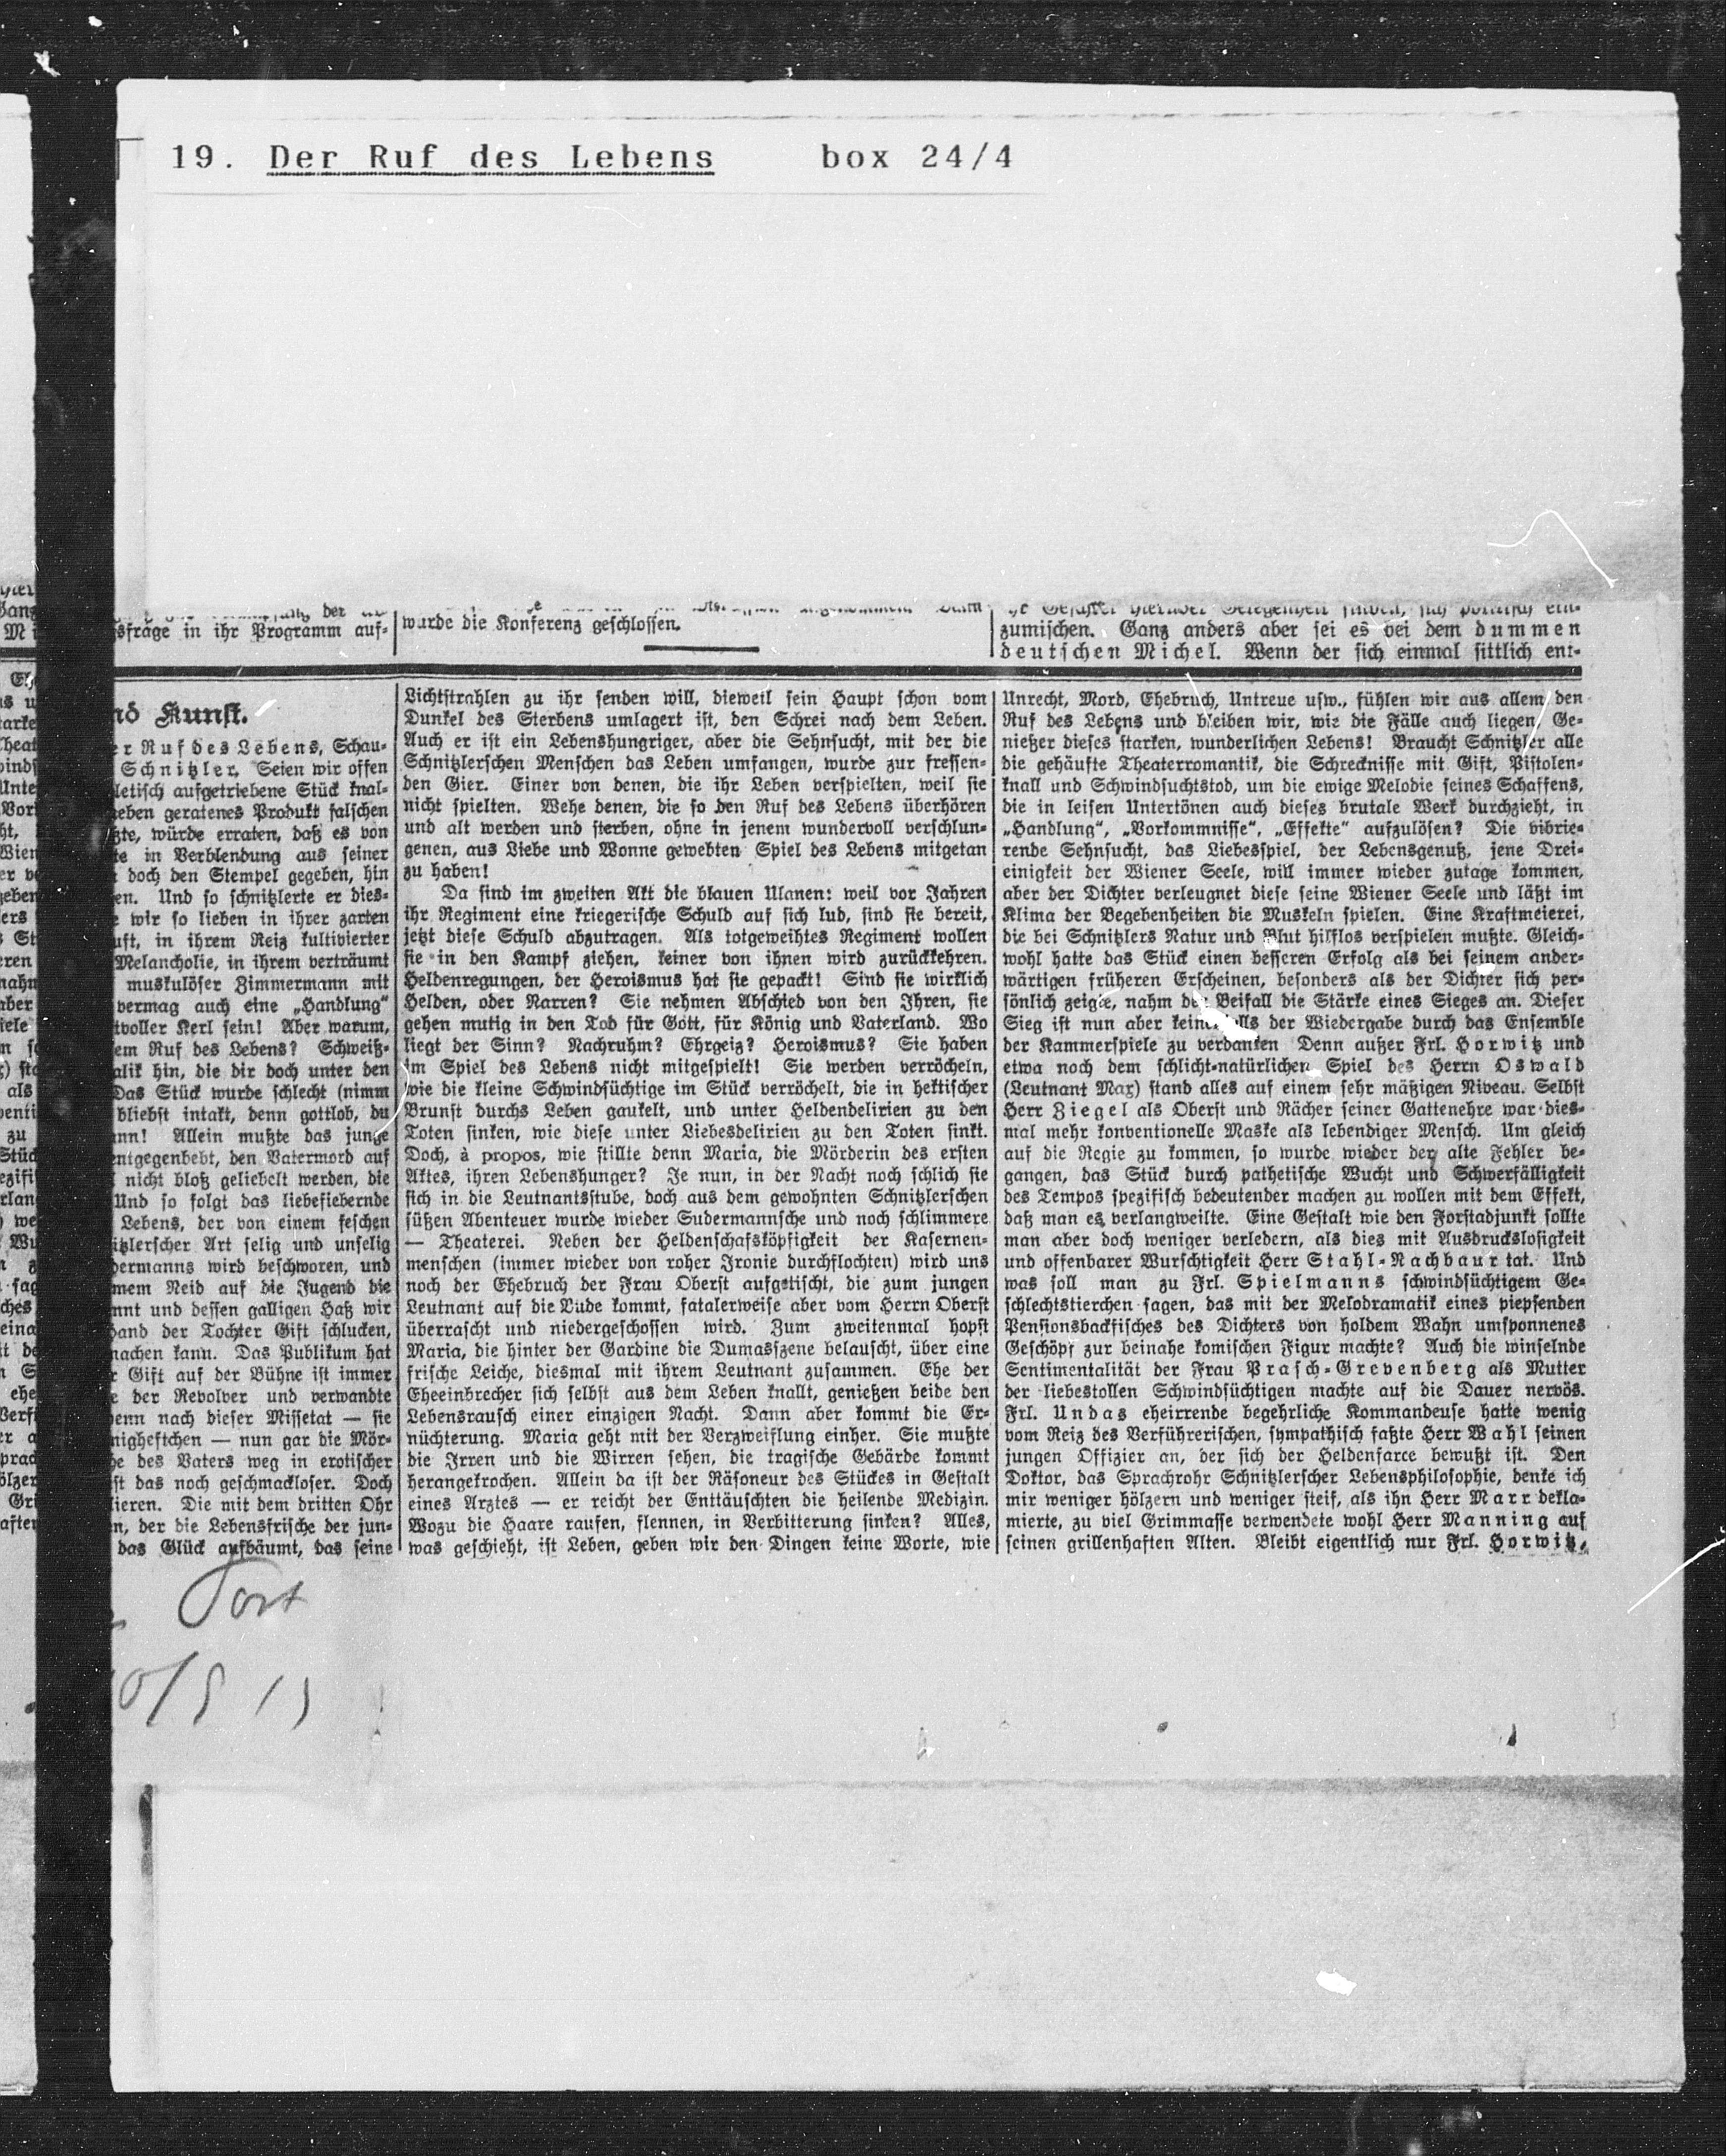 19. Der Ruf des Lebens box 24/4
sfrage in ihr Programm auf-
wurde die Konferenz geschlossen.
zumischen. Ganz anders aber sei es bei dem dummen
deutschen Michel. Wenn der sich einmal sittlich ent-
nd Kunst.
er Ruf des Lebens, Schau-
Schnitzler. Seien wir offen
letisch aufgetriebene Stück knal-
eben geratenes Produkt falschen
te, würde erraten, daß es von
te in Verblendung aus seiner
doch den Stempel gegeben, hin
en. Und so schnitzlerte er dies-
wir so lieben in ihrer zarten
uft, in ihrem Reiz kultivierter
Melancholie, in ihrem verträumt
muskulöser Zimmermann mit
vermag auch eine „Handlung“
tvoller Kerl sein! Aber warum,
em Ruf des Lebens? Schweiß-
alik hin, die dir doch unter den
Das Stück wurde schlecht (nimm
bliebst intakt, denn gottlob, du
ann! Allein mußte das junge
entgegenbebt, den Vatermord auf
nicht bloß geliebelt werden, die
Und so folgt das liebefiebernde
Lebens, der von einem feschen
itzlerscher Art selig und unselig
dermanns wird beschworen, und
mem Neid auf die Jugend die
nnt und dessen galligen Haß wir
Hand der Tochter Gift schlucken,
machen kann. Das Publikum hat
r Gift auf der Bühne ist immer
der Revolver und verwandte
enn nach dieser Missetat — sie
nigheftchen — nun gar die Mör-
he des Vaters weg in erotischer
st das noch geschmackloser. Doch
lieren. Die mit dem dritten Ohr
n, der die Lebensfrische der jun-
das Glück aufbäumt, das seine
Lichtstrahlen zu ihr senden will, dieweil sein Haupt schon vom
Dunkel des Sterbens umlagert ist, den Schrei nach dem Leben.
Auch er ist ein Lebenshungriger, aber die Sehnsucht, mit der die
Schnitzlerschen Menschen das Leben umfangen, wurde zur fressen-
den Gier. Einer von denen, die ihr Leben verspielten, weil sie
nicht spielten. Wehe denen, die so den Ruf des Lebens überhören
und alt werden und sterben, ohne in jenem wundervoll verschlun-
genen, aus Liebe und Wonne gewebten Spiel des Lebens mitgetan
zu haben!
Da sind im zweiten Akt die blauen Ulanen: weil vor Jahren
ihr Regiment eine kriegerische Schuld auf sich lud, sind sie bereit,
jetzt diese Schuld abzutragen. Als totgeweihtes Regiment wollen
sie in den Kampf ziehen, keiner von ihnen wird zurückkehren.
Heldenregungen, der Heroismus hat sie gepackt! Sind sie wirklich
Helden, oder Narren? Sie nehmen Abschied von den Ihren, sie
gehen mutig in den Tod für Gott, für König und Vaterland. Wo
liegt der Sinn? Nachruhm? Ehrgeiz? Heroismus? Sie haben
im Spiel des Lebens nicht mitgespielt! Sie werden verröcheln,
wie die kleine Schwindsüchtige im Stück verröchelt, die in hektischer
Brunst durchs Leben gaukelt, und unter Heldendelirien zu den
Toten sinken, wie diese unter Liebesdelirien zu den Toten sinkt.
Doch, à propos, wie stillte denn Maria, die Mörderin des ersten
Aktes, ihren Lebenshunger? Je nun, in der Nacht noch schlich sie
sich in die Leutnantsstube, doch aus dem gewohnten Schnitzlerschen
süßen Abenteuer wurde wieder Sudermannsche und noch schlimmere
— Theaterei. Neben der Heldenschafsköpfigkeit der Kasernen-
menschen (immer wieder von roher Ironie durchflochten) wird uns
noch der Ehebruch der Frau Oberst aufgetischt, die zum jungen
Leutnant auf die Bude kommt, fatalerweise aber vom Herrn Oberst
überrascht und niedergeschossen wird. Zum zweitenmal hopst
Maria, die hinter der Gardine die Dumasszene belauscht, über eine
frische Leiche, diesmal mit ihrem Leutnant zusammen. Ehe der
Eheeinbrecher sich selbst aus dem Leben knallt, genießen beide den
Lebensrausch einer einzigen Nacht. Dann aber kommt die Er-
nüchterung. Maria geht mit der Verzweiflung einher. Sie mußte
die Irren und die Wirren sehen, die tragische Gebärde kommt
herangekrochen. Allein da ist der Räsoneur des Stückes in Gestalt
eines Arztes — er reicht der Enttäuschten die heilende Medizin.
Wozu die Haare raufen, flennen, in Verbitterung sinken? Alles,
was geschieht, ist Leben, geben wir den Dingen keine Worte, wie
Unrecht, Mord, Ehebruch, Untreue usw., fühlen wir aus allem den
Ruf des Lebens und bleiben wir, wie die Fälle auch liegen, Ge-
nießer dieses starken, wunderlichen Lebens! Braucht Schnitzler alle
die gehäufte Theaterromantik, die Schrecknisse mit Gift, Pistolen-
knall und Schwindsuchtstod, um die ewige Melodie seines Schaffens,
die in leisen Untertönen auch dieses brutale Werk durchzieht, in
„Handlung“, „Vorkommnisse“, „Effekte“ aufzulösen? Die vibrie-
rende Sehnsucht, das Liebesspiel, der Lebensgenuß, jene Drei-
einigkeit der Wiener Seele, will immer wieder zutage kommen,
aber der Dichter verleugnet diese seine Wiener Seele und läßt im
Klima der Begebenheiten die Muskeln spielen. Eine Kraftmeierei,
die bei Schnitzlers Natur und Blut hilflos verspielen mußte. Gleich-
wohl hatte das Stück einen besseren Erfolg als bei seinem ander-
wärtigen früheren Erscheinen, besonders als der Dichter sich per-
sönlich zeigte, nahm der Beifall die Stärke eines Sieges an. Dieser
Sieg ist nun aber keinesfalls der Wiedergabe durch das Ensemble
der Kammerspiele zu verdanken Denn außer Frl. Horwitz und
etwa noch dem schlicht-natürlichen Spiel des Herrn Oswald
(Leutnant Max) stand alles auf einem sehr mäßigen Niveau. Selbst
Herr Ziegel als Oberst und Rächer seiner Gattenehre war dies-
mal mehr konventionelle Maske als lebendiger Mensch. Um gleich
auf die Regie zu kommen, so wurde wieder der alte Fehler be-
gangen, das Stück durch pathetische Wucht und Schwerfälligkeit
des Tempos spezifisch bedeutender machen zu wollen mit dem Effekt,
daß man es verlangweilte. Eine Gestalt wie den Forstadjunkt sollte
man aber doch weniger verledern, als dies mit Ausdruckslosigkeit
und offenbarer Wurschtigkeit Herr Stahl-Nachbaur tat. Und
was soll man zu Frl. Spielmanns schwindsüchtigem Ge-
schlechtstierchen sagen, das mit der Melodramatik eines piepsenden
Pensionsbackfisches des Dichters von holdem Wahn umsponnenes
Geschöpf zur beinahe komischen Figur machte? Auch die winselnde
Sentimentalität der Frau Prasch-Grevenberg als Mutter
der liebestollen Schwindsüchtigen machte auf die Dauer nervös.
Frl. Undas eheirrende begehrliche Kommandeuse hatte wenig
vom Reiz des Verführerischen, sympathisch faßte Herr Wahl seinen
jungen Offizier an, der sich der Heldenfarce bewußt ist. Den
Doktor, das Sprachrohr Schnitzlerscher Lebensphilosophie, denke ich
mir weniger hölzern und weniger steif, als ihn Herr Marr dekla-
mierte, zu viel Grimmasse verwendete wohl Herr Manning auf
seinen grillenhaften Alten. Bleibt eigentlich nur Frl. Horwitz,